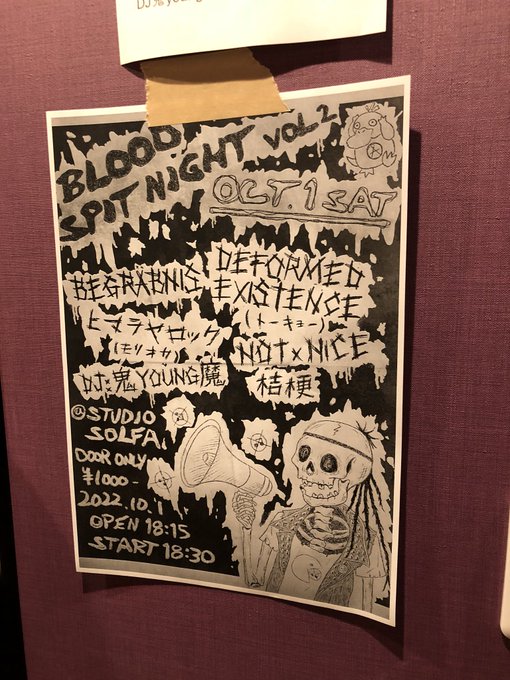 BLOOD
SPIT NIGHT VOL 2
OCT. 1 SAT
BEGRÄBNIS
DEFORMED
EXISTENCE
(トーキョー)
ヒマラヤロック
(モリオカ)
NOT×NICE
DJ:鬼YOUNG魔
桔梗
@STUDIO
SOLFA
DOOR ONLY
¥1000-
2022.10.1
OPEN 18:15
START 18:30